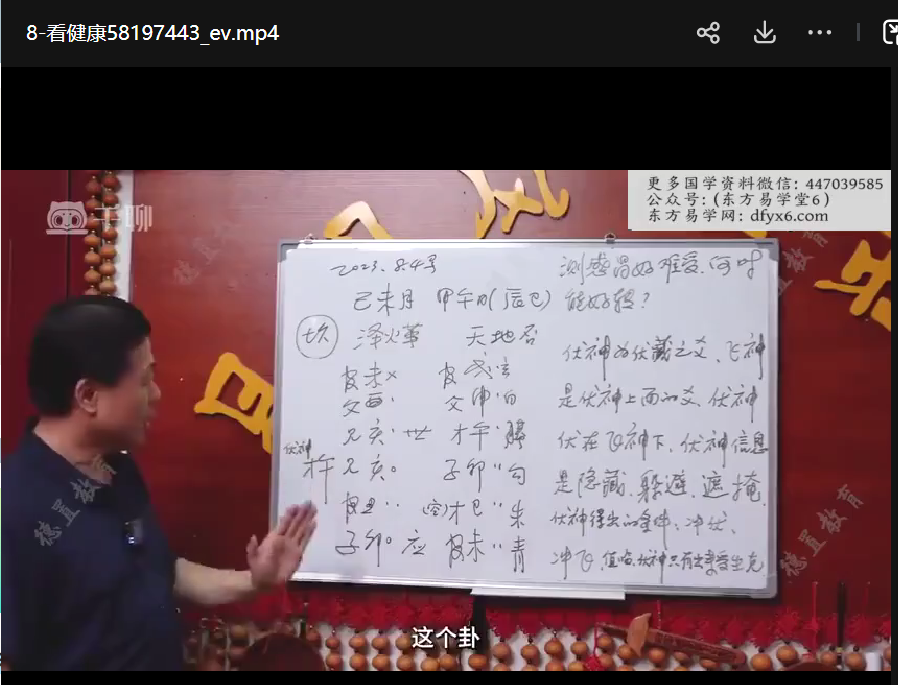 8-看健康58197443_ev.mp4
更多国学资料微信: 447039585
公众号:(东方易学堂6)
东方易学网: dfyx6.com
千聊
德置教育
2023.8.4号
测感冒好难受、何时
己未月 甲午日(辰巳)
能好转?
坎 泽火革 天地否
官未× 官戌玄
父酉、 父申白
兄亥、世 才午、螣
伏神
才午 兄亥。 子卯〃勾
官丑〃 (空)才巳〃朱
子卯。应 官未〃青
伏神为伏藏之爻、飞神
是伏神上面的爻、伏神
伏在飞神下、伏神信息
是隐藏、躲避、遮掩
伏神得出的条件:冲伏、
冲飞、值临、伏神只有出来受生克
德置教育
德置教育
这个卦